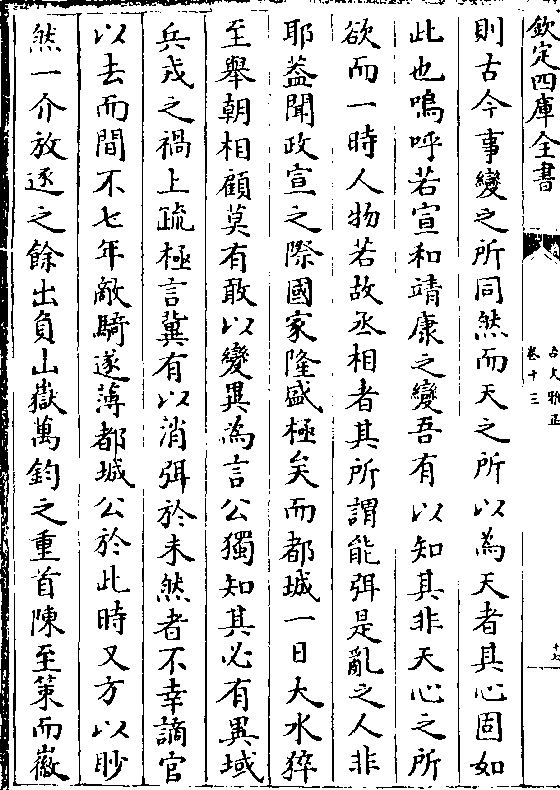 欽定四庫全書
古文雅正
卷十三
則古今事變之所同然而天之所以為天者其心固如
此也嗚呼若宣和靖康之變吾有以知其非天心之所
欲而一時人物若故丞相者其所謂能弭是亂之人非
耶葢聞政宣之際國家隆盛極矣而都城一日大水猝
至舉朝相顧莫有敢以變異為言公獨知其必有異域
兵戎之禍上疏極言冀有以消弭於未然者不幸謫官
以去而間不七年敵騎遂薄都城公於此時又方以眇
然一介放逐之餘出負山嶽萬鈞之重首陳至策而徽